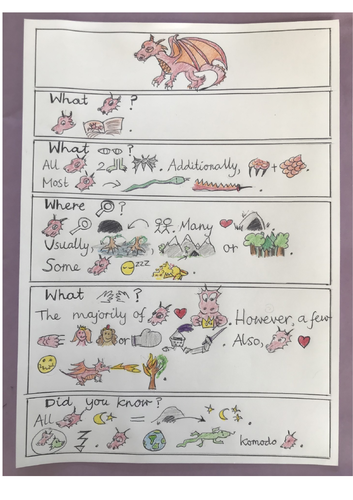 What ?
.
What ?
All 2 . Additionally, + .
Most .
Where ?
. Many .
Usually, , or .
Some zzz .
What ?
The majority of . However, a few
or . Also,
.
Did you know?
All = .
. Komodo .